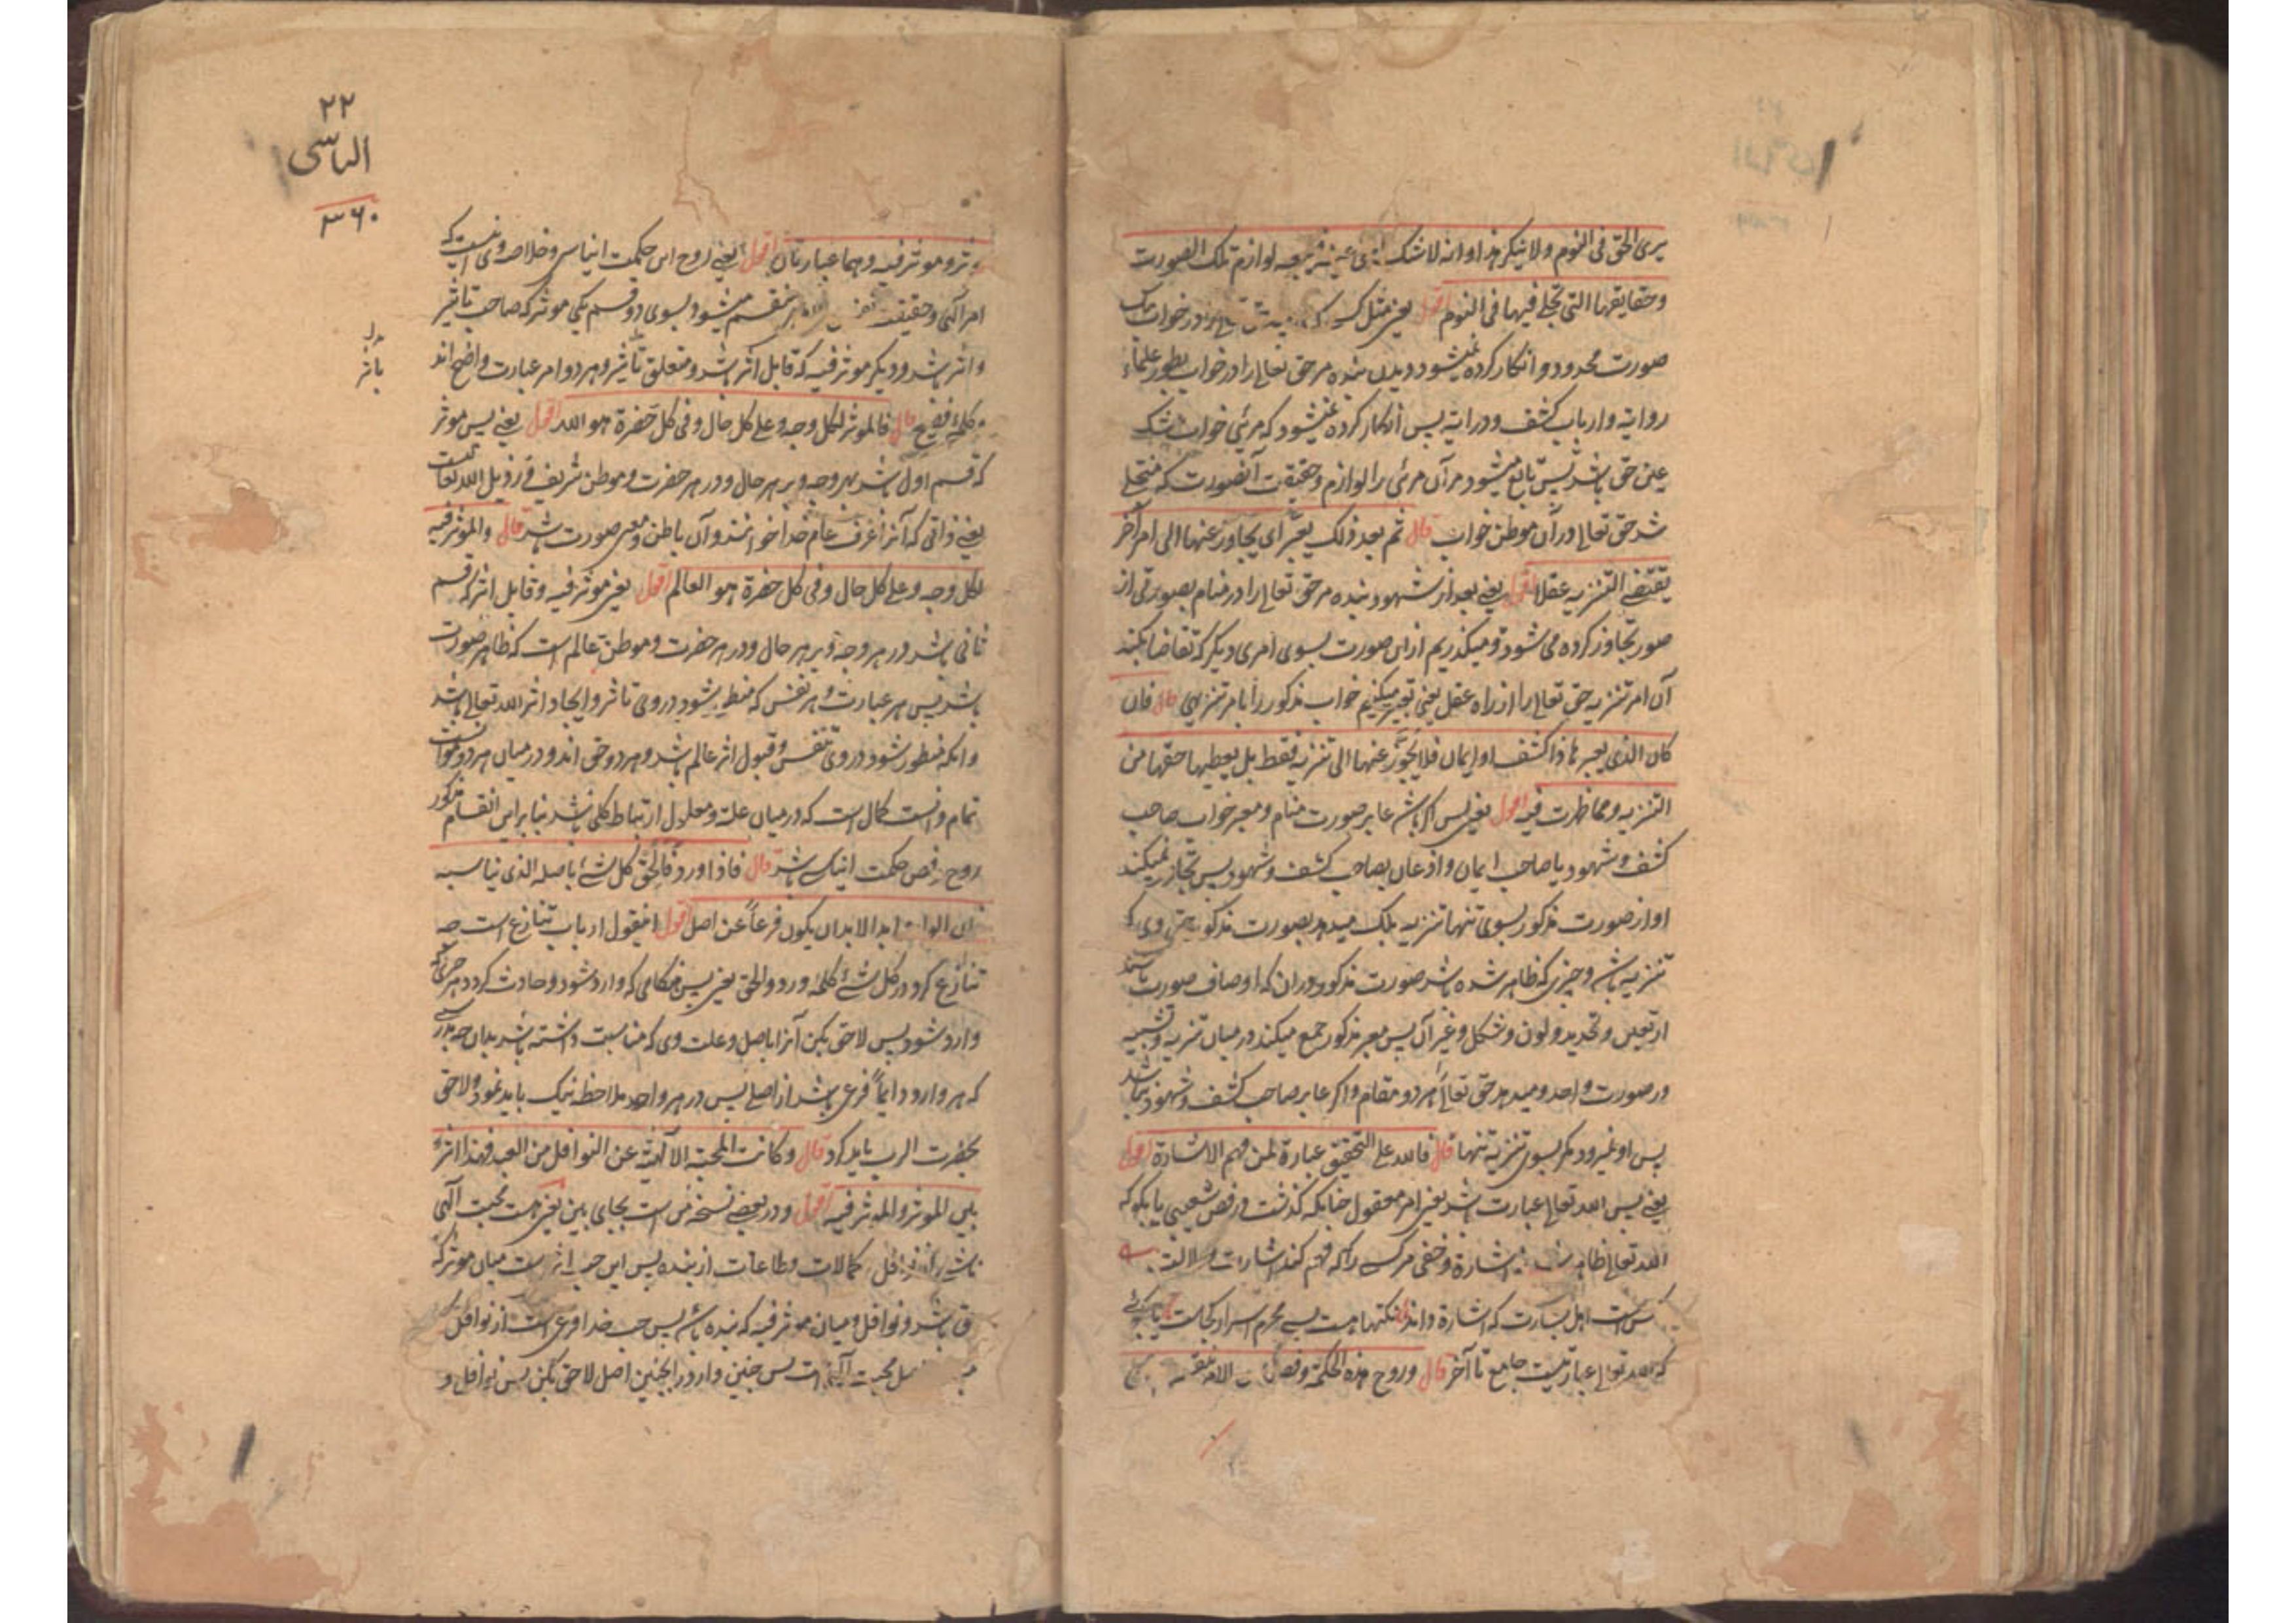 يرى الحق فى النوم ولا ينكر هذا وانه لاشك الحق عينه فيتبعه لوازم تلك الصورت
وحقايقها التى تجلى فيها فى النوم اقول يعنى مثل كسى كه حق تعالى را در خواب يك
صورت محدود و انكار كرده نميشود ديدن بنده مر حق تعالى را در خواب بطور علماء
روايته وارباب كشف ودرايته پس انكار كرده نميشود كه مرئى خواب بيشك
عين حق باشد پس تابع ميشود مر آن مرئى را لوازم وحقيقت آنصورت كه متجلى
شد حق تعالى در آن موطن خواب قال ثم بعد ذلك يعبر اى يجاوز عنها الى امر آخر
يقتضى التنزيه عقلا اقول يعنى بعد از شهود بنده مر حق تعالى را در منام بصورتى از
صور تجاوز كرده مى شود و ميكذريم ازان صورت بسوى امرى ديكر كه تقاضا بكند
آن امر تنزيه حق تعالى را از راه عقل يعنى تعبير ميكنيم خواب مذكور را بامر تنزيهى قال فان
كان الذى يعبرها ذا كشف او ايمان فلا يجوز عنها الى تنزيه فقط بل يعطيها حقها من
التنزيه ومما ظهرت فيه اقول يعنى پس اكر باشد عابر صورت منام ومعبر خواب صاحب
كشف وشهود يا صاحب ايمان واذعان بصاحب كشف وشهود پس تجاوز نميكند
او از صورت مذكور بسوى تنها تنزيه بلك ميدهد بصورت مذكور حق وى كه
تنزيه باشد وچيزى كه ظاهر شده باشد صورت مذكور دران كه اوصاف صورت باشند
از تعين وتحديد ولون وشكل وغير آن پس معبر مذكور جمع ميكند در ميان تنزيه وتشبيه
در صورت واحد وميدهد حق تعالى را هر دو مقام واكر عابر صاحب كشف وشهود نباشد
پس او نميرود مكر بسوى تنزيه تنها قال فالله على التحقيق عبارة لمن فهم الاشارة اقول
يعنى پس الله تعالى عبارت باشد يعنى امر معقول چنانكه كذشت در فص شعيبى يا بكو كه
الله تعالى ظاهر اشارة وخفى مر كسى را كه فهم كند اشارات
است اهل بشارت كه اشارة داند نكتها هست بسى محرم اسرار كجاست
كه الله تعالى عبارتيست جامع تا آخر قال وروح هذه الحكمة وفصها ان الامر ينقسم
٢٢
الياسى
٣٦٠
مؤثر ومؤثر فيه وهما عبارتان اقول يعنى روح اين حكمت اليناسى وخلاصه وى اينست كه
امر آلهى وحقيقت منقسم ميشود بسوى دو قسم يكى موثر كه صاحب تاثير
واثر باشد وديكر موثر فيه كه قابل اثر باشد ومتعلق تاثير وهر دو امر عبارت واضح اند
بدل
باثر
وكلمۀ فصيح قال فالموثر لكل وجه وعلى كل حال وفى كل حضرة هو الله اقول يعنى پس موثر
كه قسم اول باشد بهر وجه وبر هر حال ودر هر حضرت وموطن شريف ورذيل الله تعالى است
يعنى ذاتى كه آنرا عرف عام خدا خوانند وآن باطن ومعنى صورت باشد قال والموثر فيه
لكل وجه وعلى كل حال وفى كل حضرة هو العالم اقول يعنى موثر فيه وقابل اثر كه قسم
ثانى باشد در هر وجه وبر هر حال ودر هر حضرت وموطن عالم است كه ظاهر صورت
باشد پس هر عبارت وهر نفس كه منظور شود در وى تاثر وايجاد اثر الله تعالى باشد
وانكه منظور شود در وى تنفس وقبول اثر عالم باشد وهر دو حق اند ودر ميان هر دو موانست
تمام وانست كمال است كه در ميان علت ومعلول ارتباط كلى باشد بنابراين انقسام مذكور
روح فص حكمت ايناسى باشد قال فاذا ورد فالحق كل شئ باصله الذى يناسبه
فان الوارد ابدا لابد ان يكون فرعاً عن اصل اقول اينقول ارباب تنازع است چه
تنازع كرد در كل شئ كلمه ورد والحق يعنى پس هنكامى كه وارد شود وحادث كردد هر چيزى كه
وارد شود پس لاحق بكن آنرا باصل وعلت وى كه مناسبت داشته باشد بدان چه بدرستى
كه هر وارد دايماً فرعى باشد از اصلى پس در هر واحد ملاحظه نيك بايد نمود ولاحق
بحضرت الرب بايد كرد قال وكانت المحبة الآلهيّة عن النوافل من العبد فهذا اثرٌ
بين الموثر والموثر فيه اقول ودر بعضى نسخه من است بجاى بين يعنى هست محبت آلهى
ناشى از نوافل كمالات وطاعات از بنده پس اين حب اثر است ميان موثر كه
حق باشد ونوافل وميان موثر فيه كه بنده باشد پس حب خدا فرعى است از نوافل
اصل محبت آلهى است پس چنين وارد را بچنين اصل لاحق بكن پس نوافل و